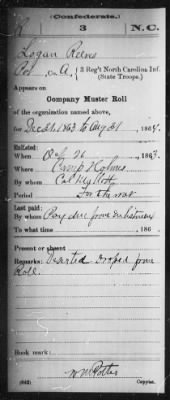 (Confederate.)
R 3 N.C.
Logan Reins
Co. A, 3 Reg't North Carolina Inf.
(State Troops.)
Appears on
Company Muster Roll
of the organization named above,
for Dec 31 1863 to Aug 31, 1864.
Enlisted:
When Oct 26, 1863.
Where Camp Holmes
By whom Col
Period For the war
Last paid:
By whom Pay due from Enlistment
To what time , 186 .
Present or absent
Remarks: Deserted droped from
Roll.
Book mark:
(642) Copyist.